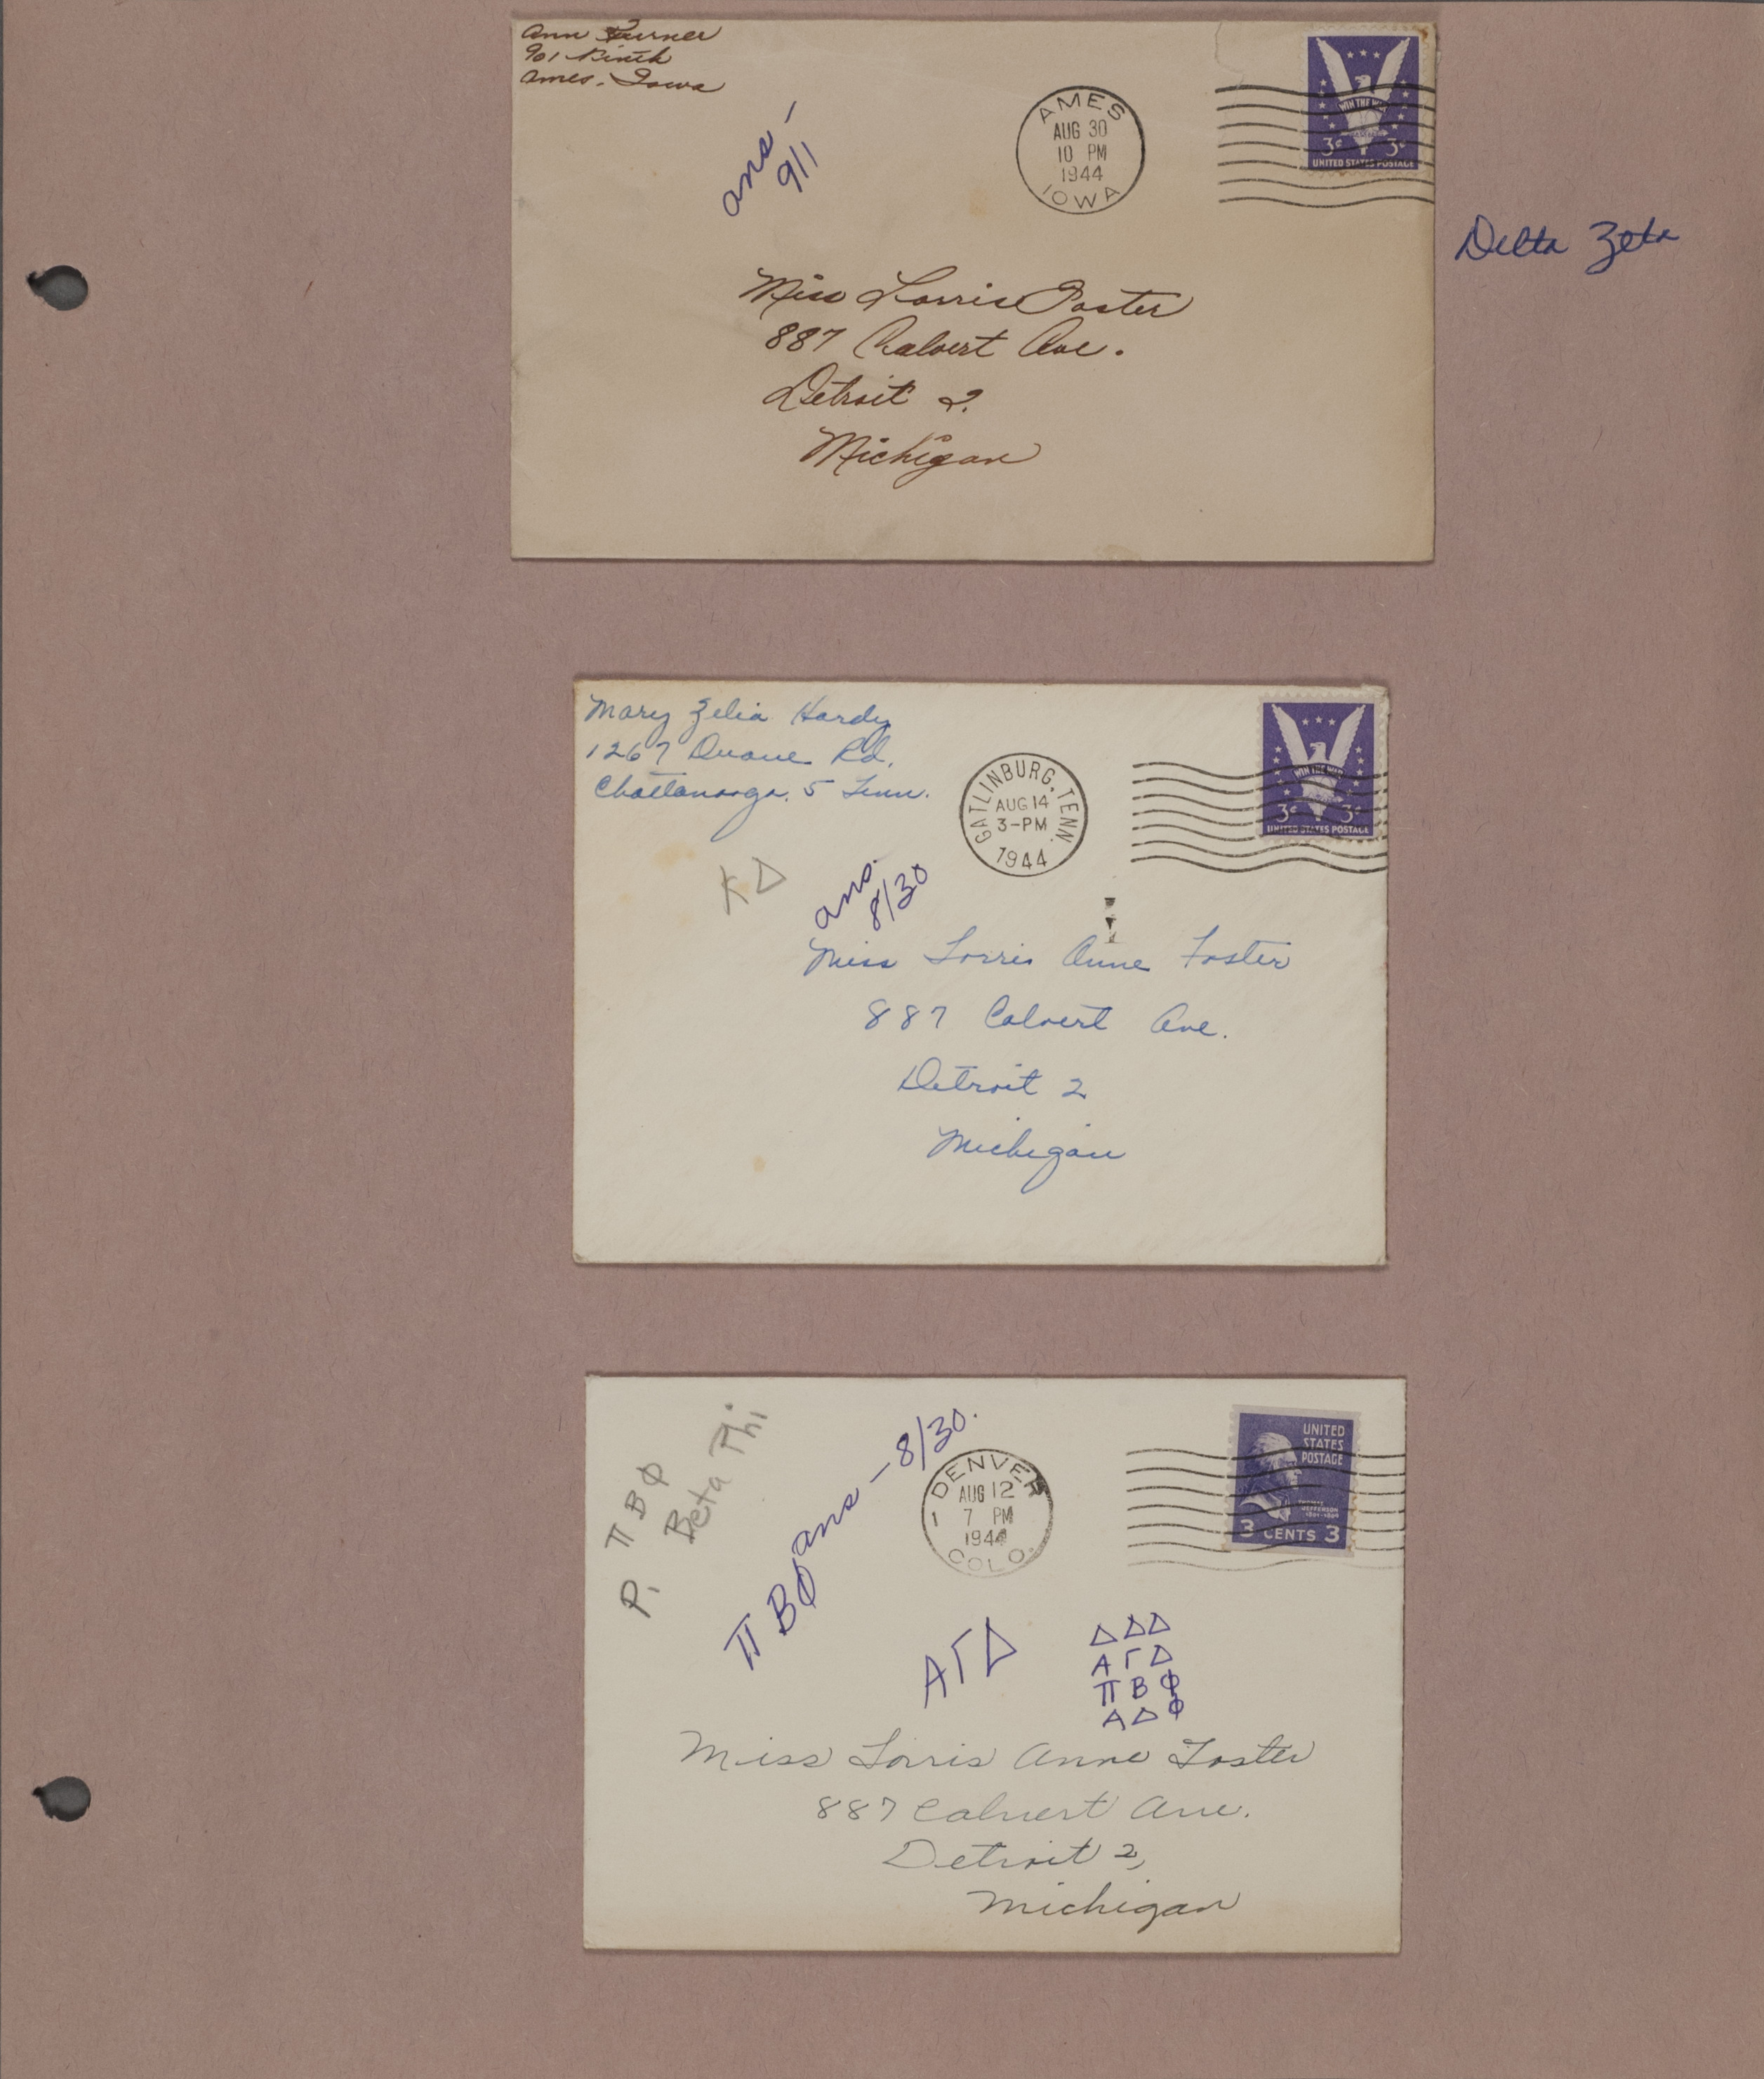 Ann Turner
901 Ninth
Ames, Iowa
ans -
9/1
AMES
AUG 30
10 PM
1944
IOWA
WIN THE WAR
3¢ 3¢
UNITED STATES POSTAGE
Delta Zeta
Miss Lorris Foster
887 Calvert Ave.
Detroit 2.
Michigan
Mary Zelia Hardy
1267 Duane Rd.
Chattanooga. 5 Tenn.
GATLINBURG, TENN.
AUG 14
3-PM
1944
WIN THE WAR
3¢ 3¢
UNITED STATES POSTAGE
ΚΔ
ans.
8/30
Miss Lorris Anne Foster
887 Calvert Ave.
Detroit 2
Michigan
Π Β Φ
Pi Beta Phi
Π Β Φ ans - 8/30.
DENVER
AUG 12
1 7 PM
1944
COLO.
UNITED
STATES
POSTAGE
THOMAS
JEFFERSON
3 CENTS 3
Α Γ Δ
Δ Δ Δ
Α Γ Δ
Π Β Φ
Α Δ Φ
Miss Lorris Anne Foster
887 Calvert Ave.
Detroit 2,
Michigan